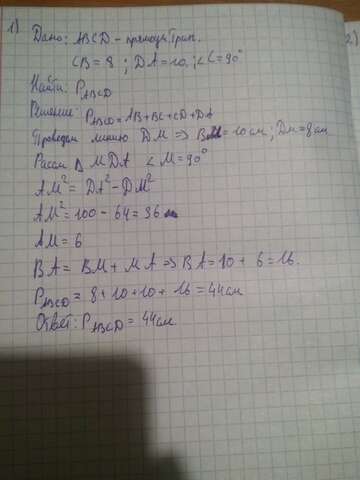 1) Дано: ABCD - прямоуг. трап. 2)
CB = 8 ; DA = 10, ; ∠C = 90°
Найти: P ABCD
Решение: P ABCD = AB + BC + CD + DA
Проведем линию DM => BM = 10 см ; DM = 8 см
Рассм Δ MDA ∠M = 90°
AM² = DA² - DM²
AM² = 100 - 64 = 36
AM = 6
BA = BM + MA => BA = 10 + 6 = 16.
P ABCD = 8 + 10 + 10 + 16 = 44 см
Ответ: P ABCD = 44 см